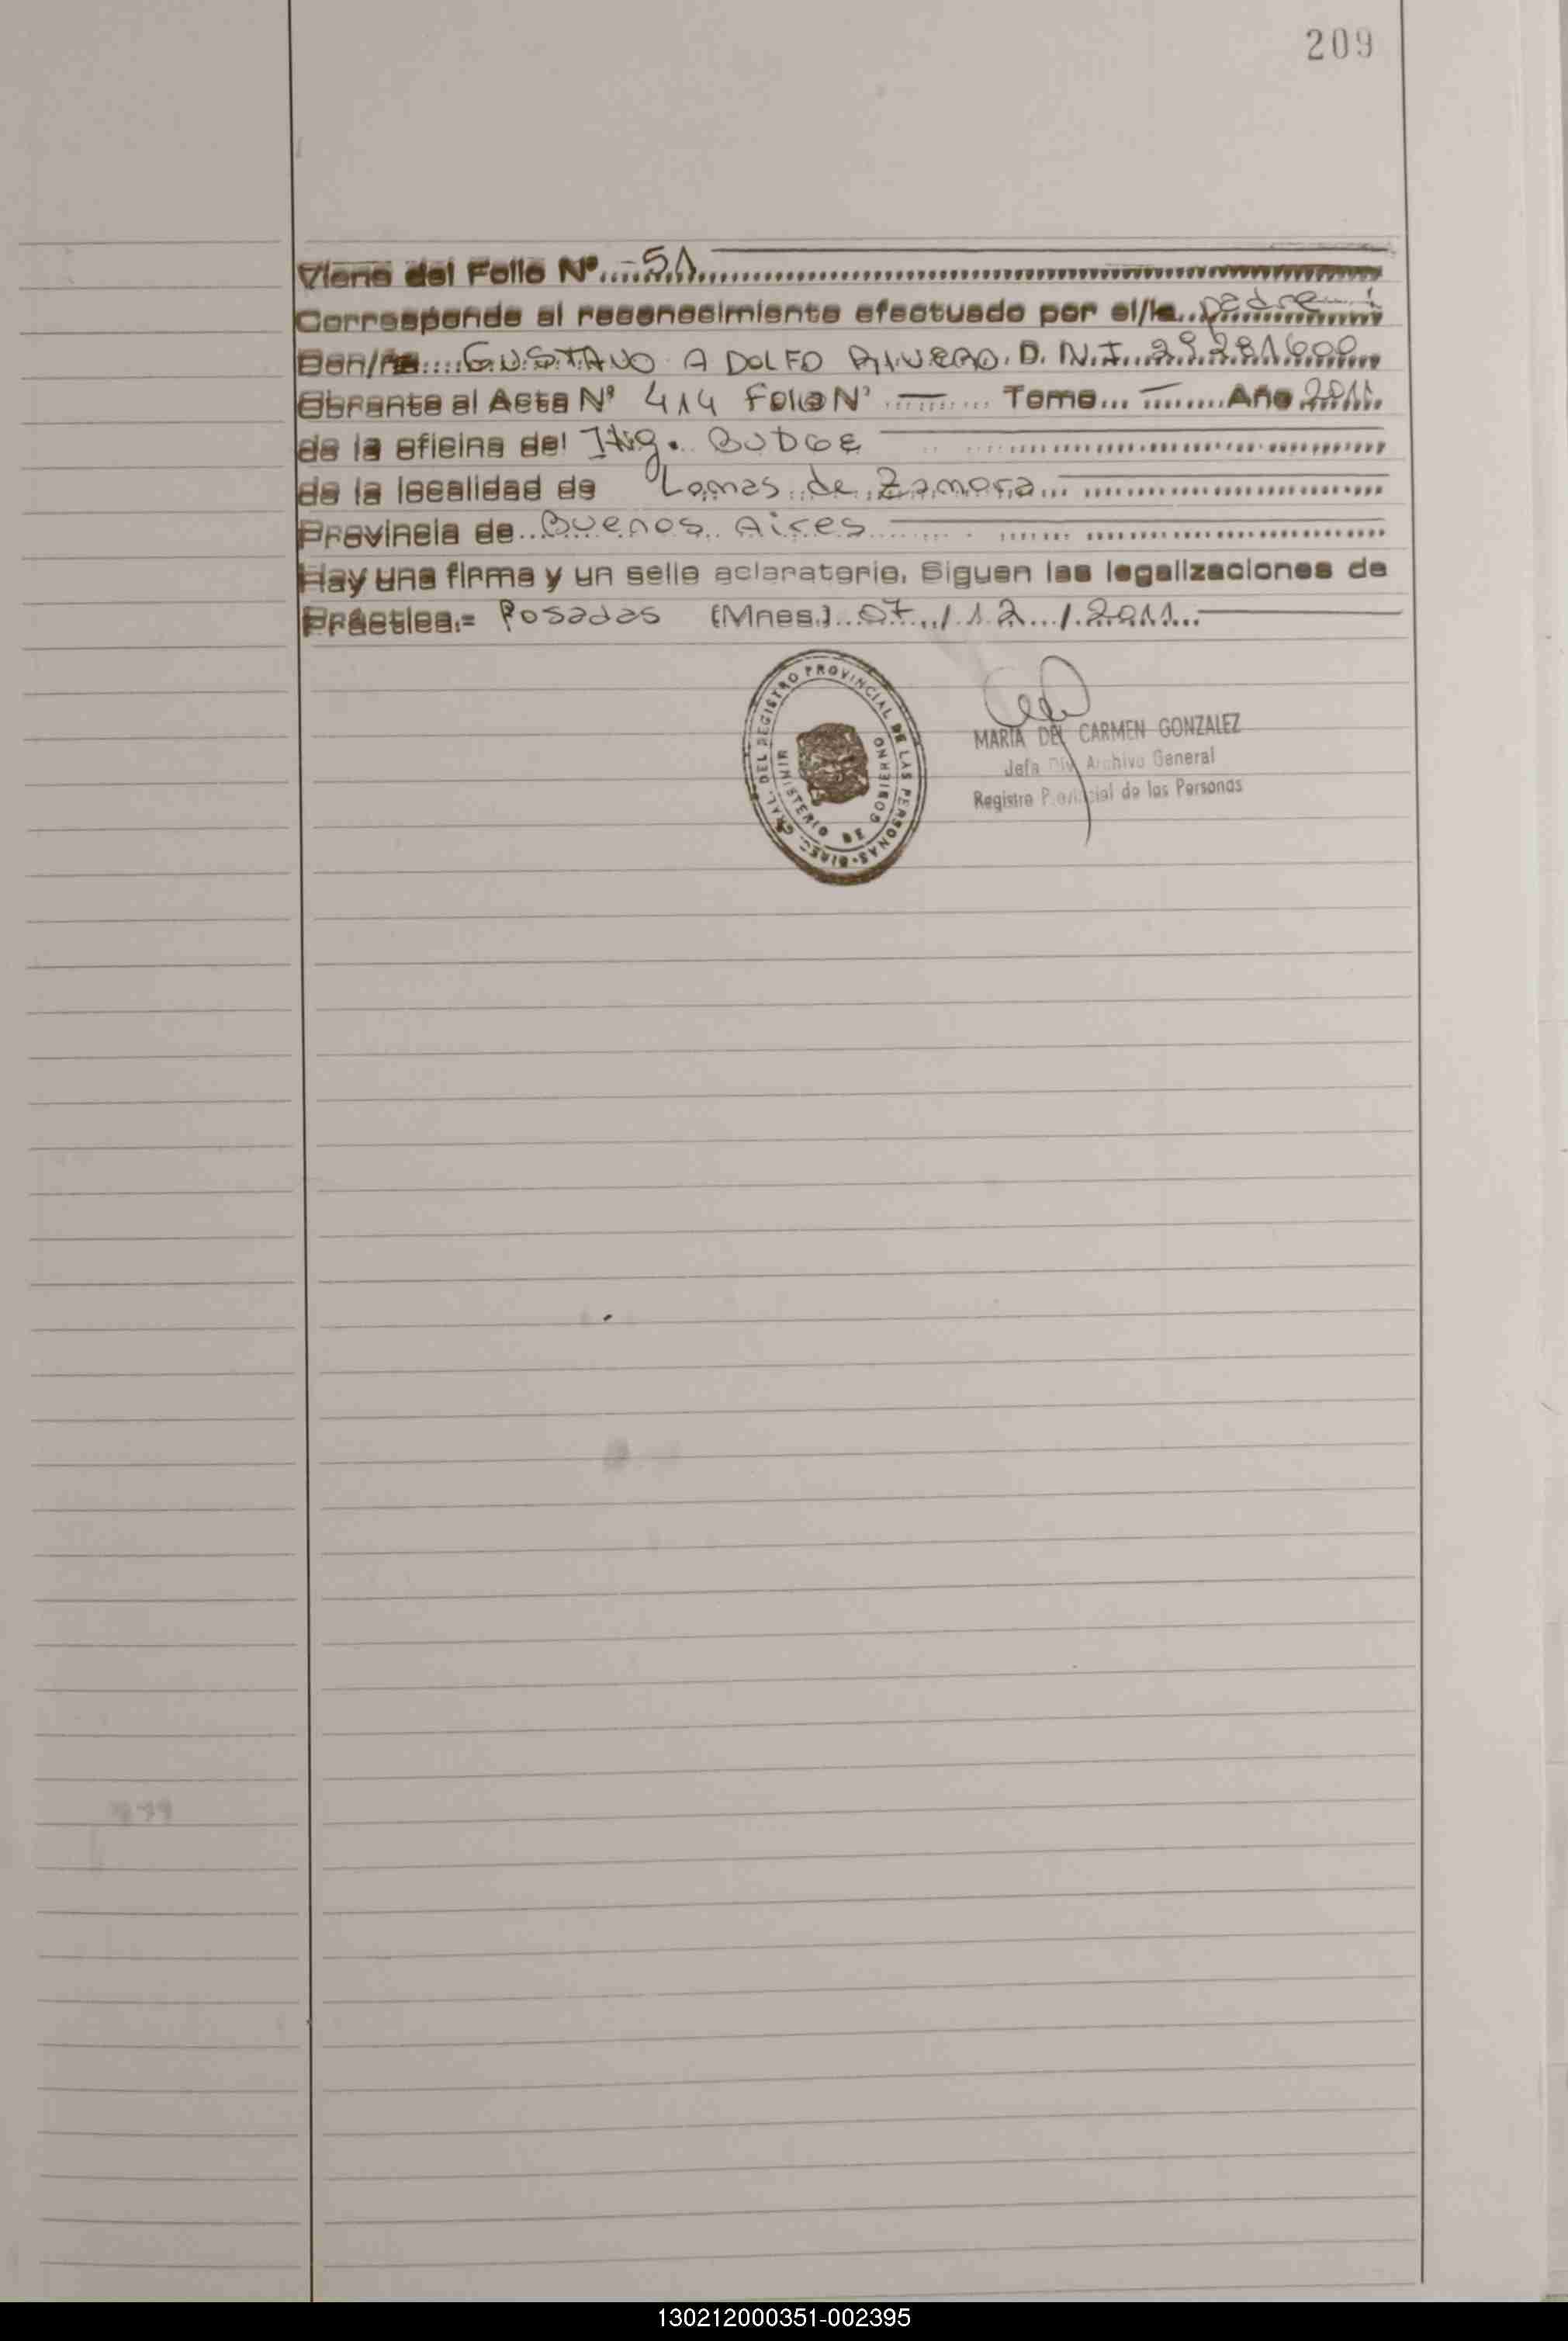 209
Viene del Folio Nº.....51
Corresponde al reconocimiento efectuado por el/la..padre
Don/ña....GUSTAVO ADOLFO RIVERO. D. N.I...29281600
Obrante al Acta Nº 414 Folio Nº — Tomo... — Año 2011
de la oficina del Ing. BUDGE
de la localidad de Lomas de Zamora
Provincia de..Buenos Aires
Hay una firma y un sello aclaratorio. Siguen las legalizaciones de
Práctica.= Posadas (Mnes.)..07../.12.../.2011...
DIREC. GRAL. DEL REGISTRO PROVINCIAL DE LAS PERSONAS
MINISTERIO DE GOBIERNO
MARIA DEL CARMEN GONZALEZ
Jefa Div. Archivo General
Registro Provincial de las Personas
130212000351-002395